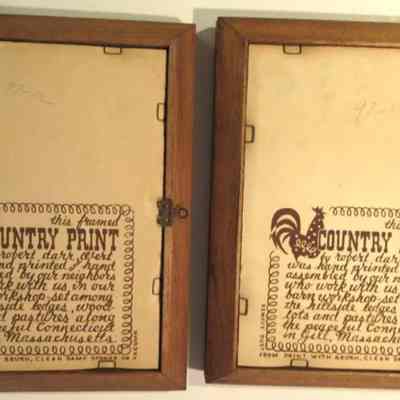 this framed
UNTRY PRINT
robert darr wert
nd printed & hand
ed by our neighbors
rk with us in our
orkshop-set among
side ledges, wood
nd pastures along
eful Connecticut
Massachusetts.
BRUSH, CLEAN DAMP SPONGE OR
VACUUM
this
COUNTRY
by robert darr
was hand printed
assembled by our n
who work with u
barn workshop-set
the hillside ledges
lots and pastures
the peaceful Conn
in Gill, Massachu
REMOVE DUST
FROM PRINT WITH BRUSH, CLEAN DAM